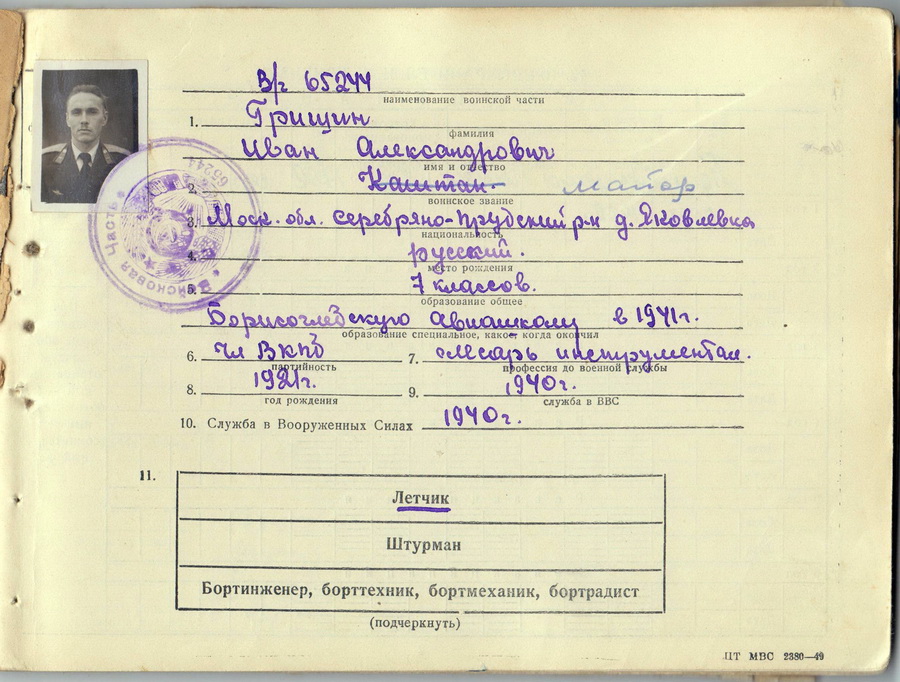 В/ч 65244
наименование воинской части
1. Грищин
фамилия
Иван Александрович
имя и отчество
2. майор
воинское звание
3. Моск. обл. Серебряно-Прудский р-н д. Яковлевка
национальность
4. русский.
место рождения
5. 7 классов.
образование общее
Борисоглебскую авиашколу в 1941 г.
образование специальное, какое, когда окончил
6. чл ВКПб 7. слесарь инструментал.
партийность профессия до военной службы
8. 1921 г. 9. 1940 г.
год рождения служба в ВВС
10. Служба в Вооруженных Силах 1940 г.
11.
Летчик
Штурман
Бортинженер, борттехник, бортмеханик, бортрадист
(подчеркнуть)
ЦТ МВС 2380—49
Войсковая часть * 65244 *